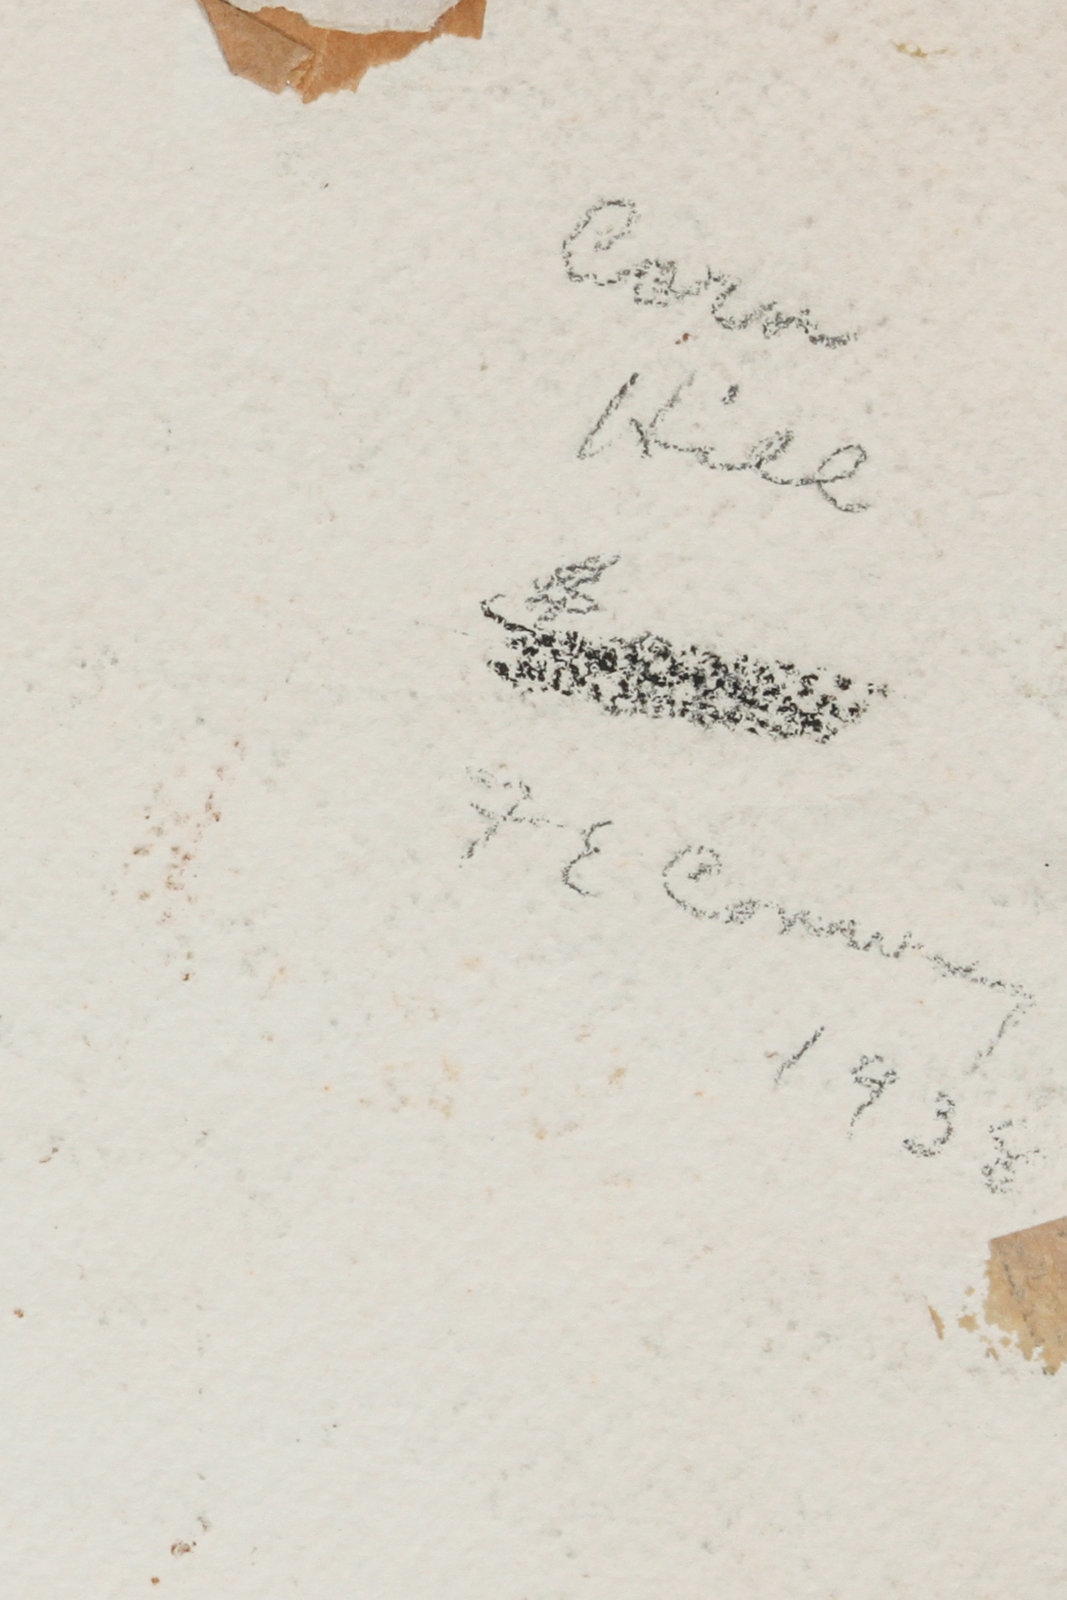 Corn
Hill
F E Conway
1938